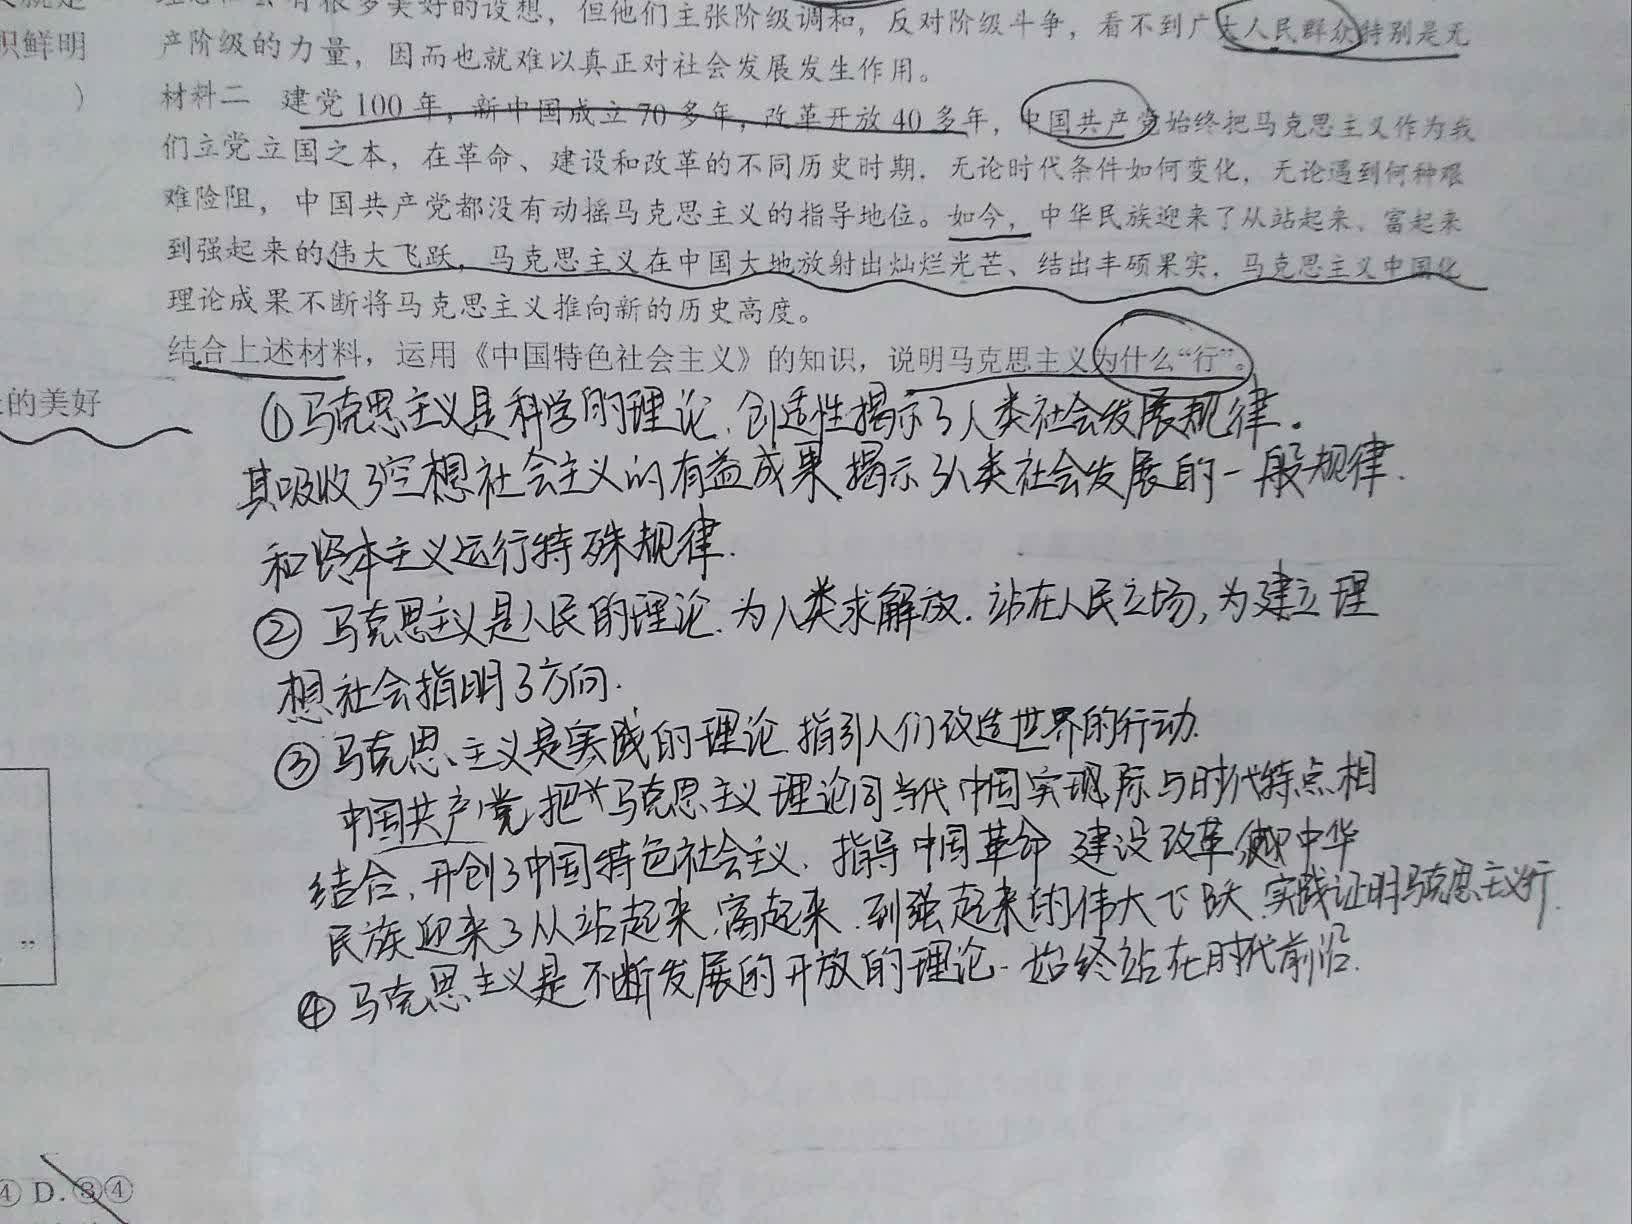 理想社会有很多美好的设想，但他们主张阶级调和，反对阶级斗争，看不到广大人民群众特别是无
产阶级的力量，因而也就难以真正对社会发展发生作用。
织鲜明
）
材料二 建党100年，新中国成立70多年，改革开放40多年，中国共产党始终把马克思主义作为我
们立党立国之本，在革命、建设和改革的不同历史时期，无论时代条件如何变化，无论遇到何种艰
难险阻，中国共产党都没有动摇马克思主义的指导地位。如今，中华民族迎来了从站起来、富起来
到强起来的伟大飞跃，马克思主义在中国大地放射出灿烂光芒、结出丰硕果实，马克思主义中国化
理论成果不断将马克思主义推向新的历史高度。
结合上述材料，运用《中国特色社会主义》的知识，说明马克思主义为什么“行”。
的美好
①马克思主义是科学的理论，创造性揭示了人类社会发展规律。
其吸收了空想社会主义的有益成果，揭示了人类社会发展的一般规律.
和资本主义运行特殊规律.
②马克思主义是人民的理论.为人类求解放.站在人民立场,为建立理
想社会指明了方向.
③马克思主义是实践的理论.指引人们改造世界的行动.
中国共产党把马克思主义理论同当代中国实际与时代特点相
结合,开创了中国特色社会主义.指导中国革命 建设改革,中华
民族迎来了从站起来,富起来.到强起来的伟大飞跃.实践证明马克思主义行.
④马克思主义是不断发展的开放的理论.始终站在时代前沿.
”
④ D.③④